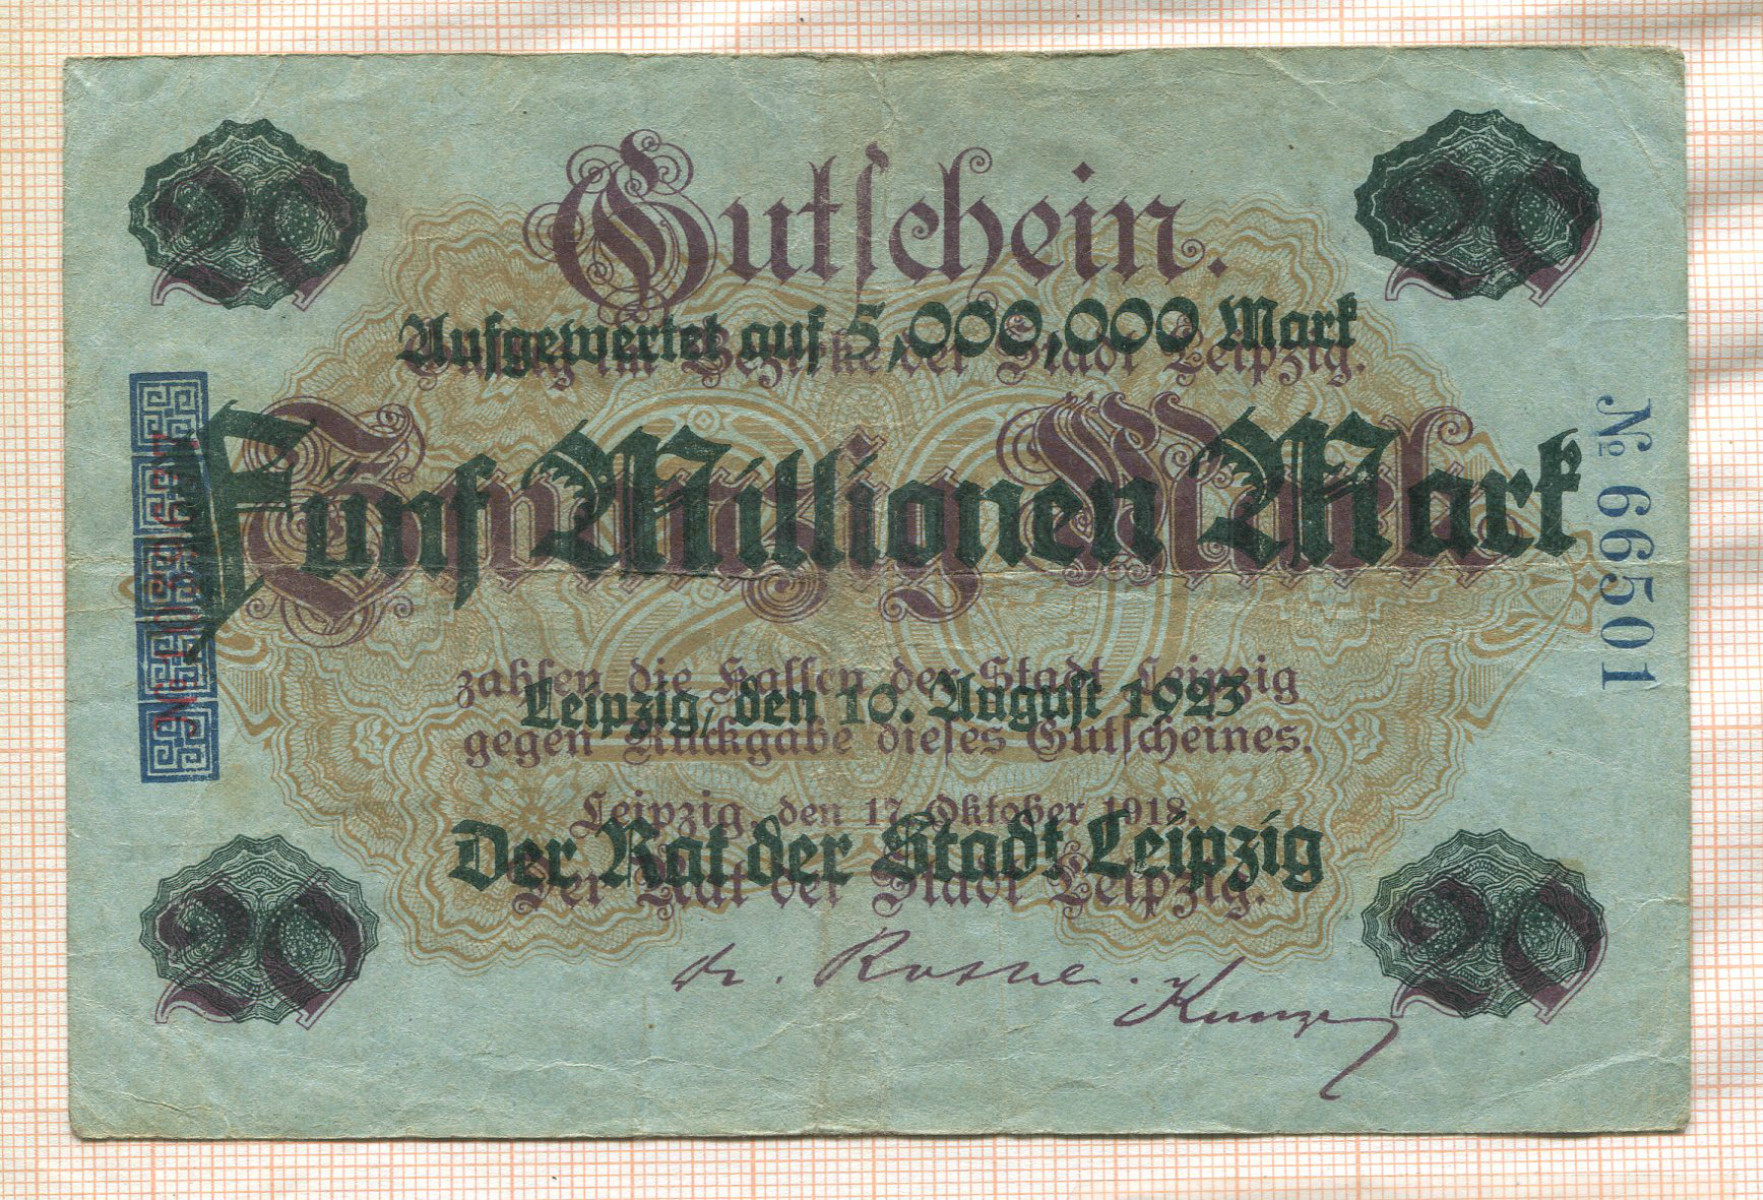 20 20
Gutschein.
Aufgewertet auf 5,000,000 Mark
Gültig im Bezirke der Stadt Leipzig.
Fünf Millionen Mark
Zwanzig Mark
№ 66501
zahlen die Kassen der Stadt Leipzig
Leipzig, den 10. August 1923
gegen Rückgabe dieses Gutscheines.
Leipzig, den 17. Oktober 1918.
Der Rat der Stadt Leipzig
Der Rat der Stadt Leipzig.
Dr. Rothe. Kunze
20 20